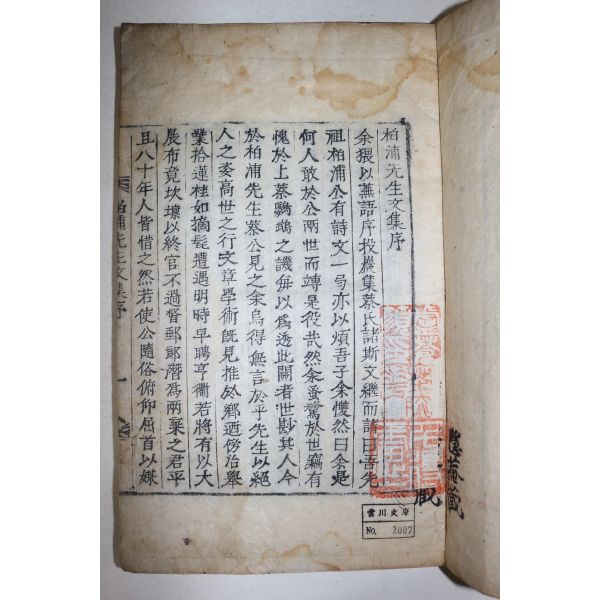 柏浦先生文集序
余猥以蕪語序投巖集蔡氏諸斯文繼而請曰吾先
祖柏浦公有詩文一弓亦以煩吾子余戄然曰余是
何人敢於公兩世而竱是役哉然余蚤驚於世竊有
愧於上蔡鸚鵡之譏毎以爲透此關者世尠其人今
於柏浦先生蔡公見之余烏得無言於乎先生以絕
人之姿高世之行文章學術旣見推於鄉迺傍治擧
業拾蓮桂如摘髭遭遇明時早聘亨衢若將有以大
展布竟坎壈以終官不過督郵郞潛爲兩棄之君平
且八十年人皆惜之然若使公隨俗俯仰屈首以媒
柏浦先生文集序
一
藏
雲川文庫
No. 2007